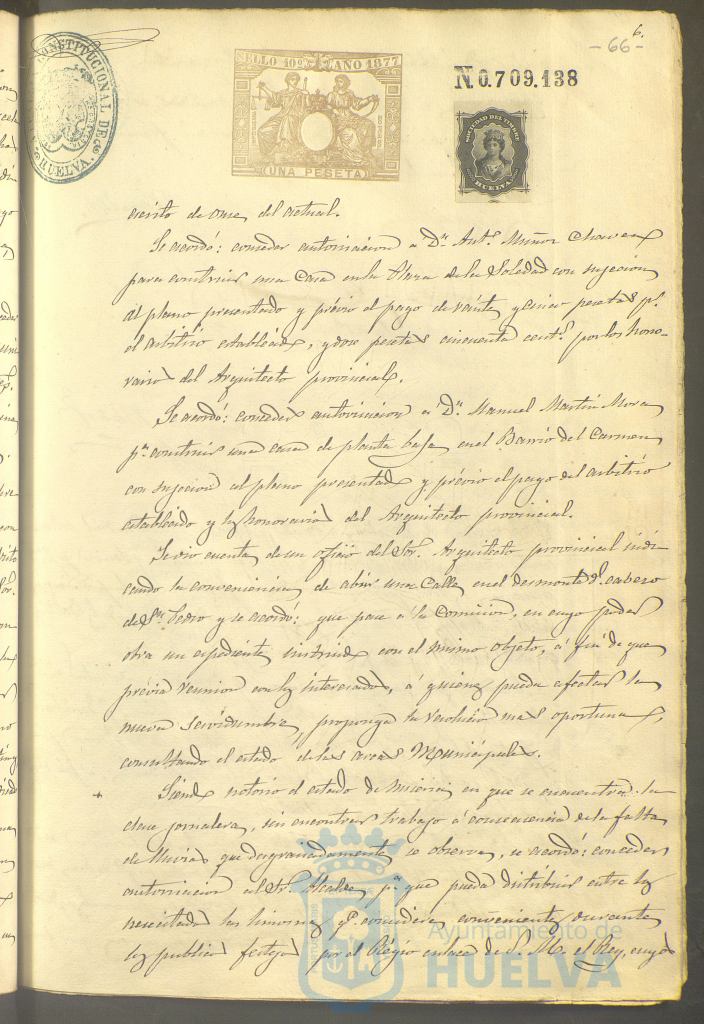 6.
- 66 -
CONSTITUCIONAL DE
HUELVA.
SELLO 10º AÑO 1877
UNA PESETA
N.0.709.138
SOCIEDAD DEL TIMBRE
HUELVA
escrito de once del actual.
Se acordó: conceder autorizacion a Dn. Antº. Muñoz Chaves
para construir una Casa en la Plaza de la Soledad con sujecion
al plano presentado y prévio el pago de veinte y cinco pesetas pr.
el arbitrio establecido, y doce pesetas cincuenta centˢ. por los hono-
rarios del Arquitecto provincial.
Se acordó: conceder autorizacion a Dn. Manuel Martin Mora
pª. construir una casa de planta baja en el Barrio del Carmen
con sujecion al plano presentado y prévio el pago del arbitrio
establecido y los honorarios del Arquitecto provincial.
Se dio cuenta de un oficio del Sor. Arquitecto provincial indi-
cando la conveniencia de abrir una Calle en el desmonte del cabezo
de Sn. Pedro y se acordó: que pase a la Comision, en cuyo poder
obra un espediente instruido con el mismo objeto, á fin de que
prévia reunion con los interesados, á quienes pueda afectar la
nueva servidumbre, proponga la resolucion mas oportuna,
consultando el estado de las arcas Municipales.
Siendo notorio el estado de miseria en que se encuentra la
clase jornalera, sin encontrar trabajo á consecuencia de la falta
de lluvias que desgraciadamente se observa, se acordó: conceder
autorizacion al Sr. Alcalde pª. que pueda distribuir entre los
necesitados las limosnas qe. considere convenientes durante
los publicos festejos por el Régio enlace de S. M. el Rey, cuyos
Ayuntamiento de
HUELVA